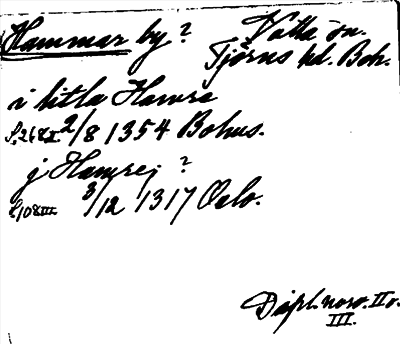 Hammar by? Valla sn.
Tjörns hd. Boh.
i litla Hamre
S. 268 II 2/8 1354 Bohus.
j Hamrej ?
S. 108 III 3/12 1317 Oslo.
Dipl. norv. II o.
III.